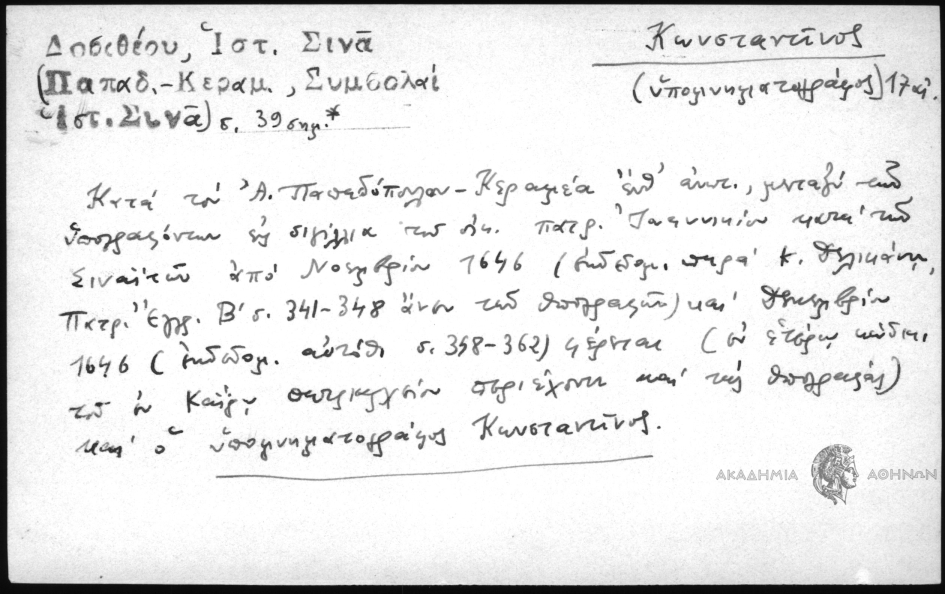 Δοσιθέου, Ἱστ. Σινᾶ
(Παπαδ.-Κεραμ., Συμβολαί
Ἱστ. Σινᾶ) σ. 39 σημ.*
Κωνσταντῖνος
(ὑπομνηματογράφος) 17 αἰ.
Κατά τόν Ἀ. Παπαδόπουλον-Κεραμέα ἔνθ' ἀνωτ., μεταξύ τῶν
ὑπογραψάντων εἰς σιγίλλια τοῦ οἰκ. πατρ. Ἰωαννικίου κατά τῶν
Σιναϊτῶν ἀπό Νοεμβρίου 1646 (ἐκδεδομ. παρά Κ. Δελικάνη,
Πατρ. Ἔγγρ. Β' σ. 341-348 ἄνευ τῶν ὑπογραφῶν) καί Δεκεμβρίου
1646 (ἐκδεδομ. αὐτόθι σ. 358-362) φέρεται (ἐν ἑτέρῳ κώδικι
τοῦ ἐν Καΐρῳ πατριαρχείου περιέχοντι καί τάς ὑπογραφάς)
καί ὁ ὑπομνηματογράφος Κωνσταντῖνος.
ΑΚΑΔΗΜΙΑ ΑΘΗΝΩΝ